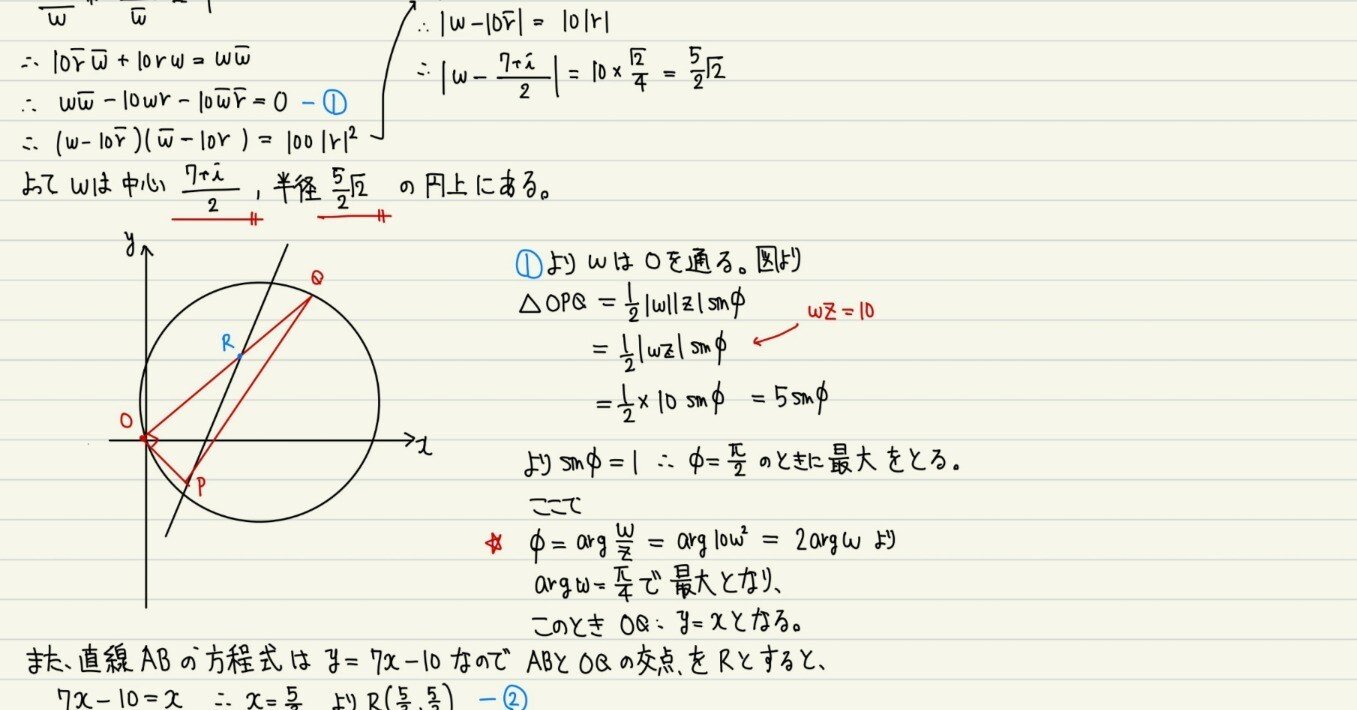 ∴ 10r̄w̄ + 10rw = ww̄
∴ ww̄ − 10wr − 10w̄r̄ = 0 − ①
∴ (w−10r̄)(w̄−10r) = 100|r|²
∴ |w−10r̄| = 10|r|
∴ |w − (7+i)/2| = 10 × √2/4 = 5/2√2
よって wは中心 (7+i)/2 , 半径 5/2√2 の円上にある。
y
x
O
P
Q
R
①より wは Oを通る。図より
△OPQ = 1/2|w||z|sinφ
= 1/2|wz|sinφ
wz = 10
= 1/2 × 10 sinφ = 5sinφ
より sinφ = 1 ∴ φ = π/2 のときに最大をとる。
ここで
☆ φ = arg w/z = arg 10w² = 2argw より
argw = π/4 で最大となり、
このとき OQ: y=xとなる。
また、直線ABの方程式は y=7x−10 なので ABとOQの交点をRとすると、
7x−10 = x ∴ x = 5/3 より R(5/3, 5/3) − ②